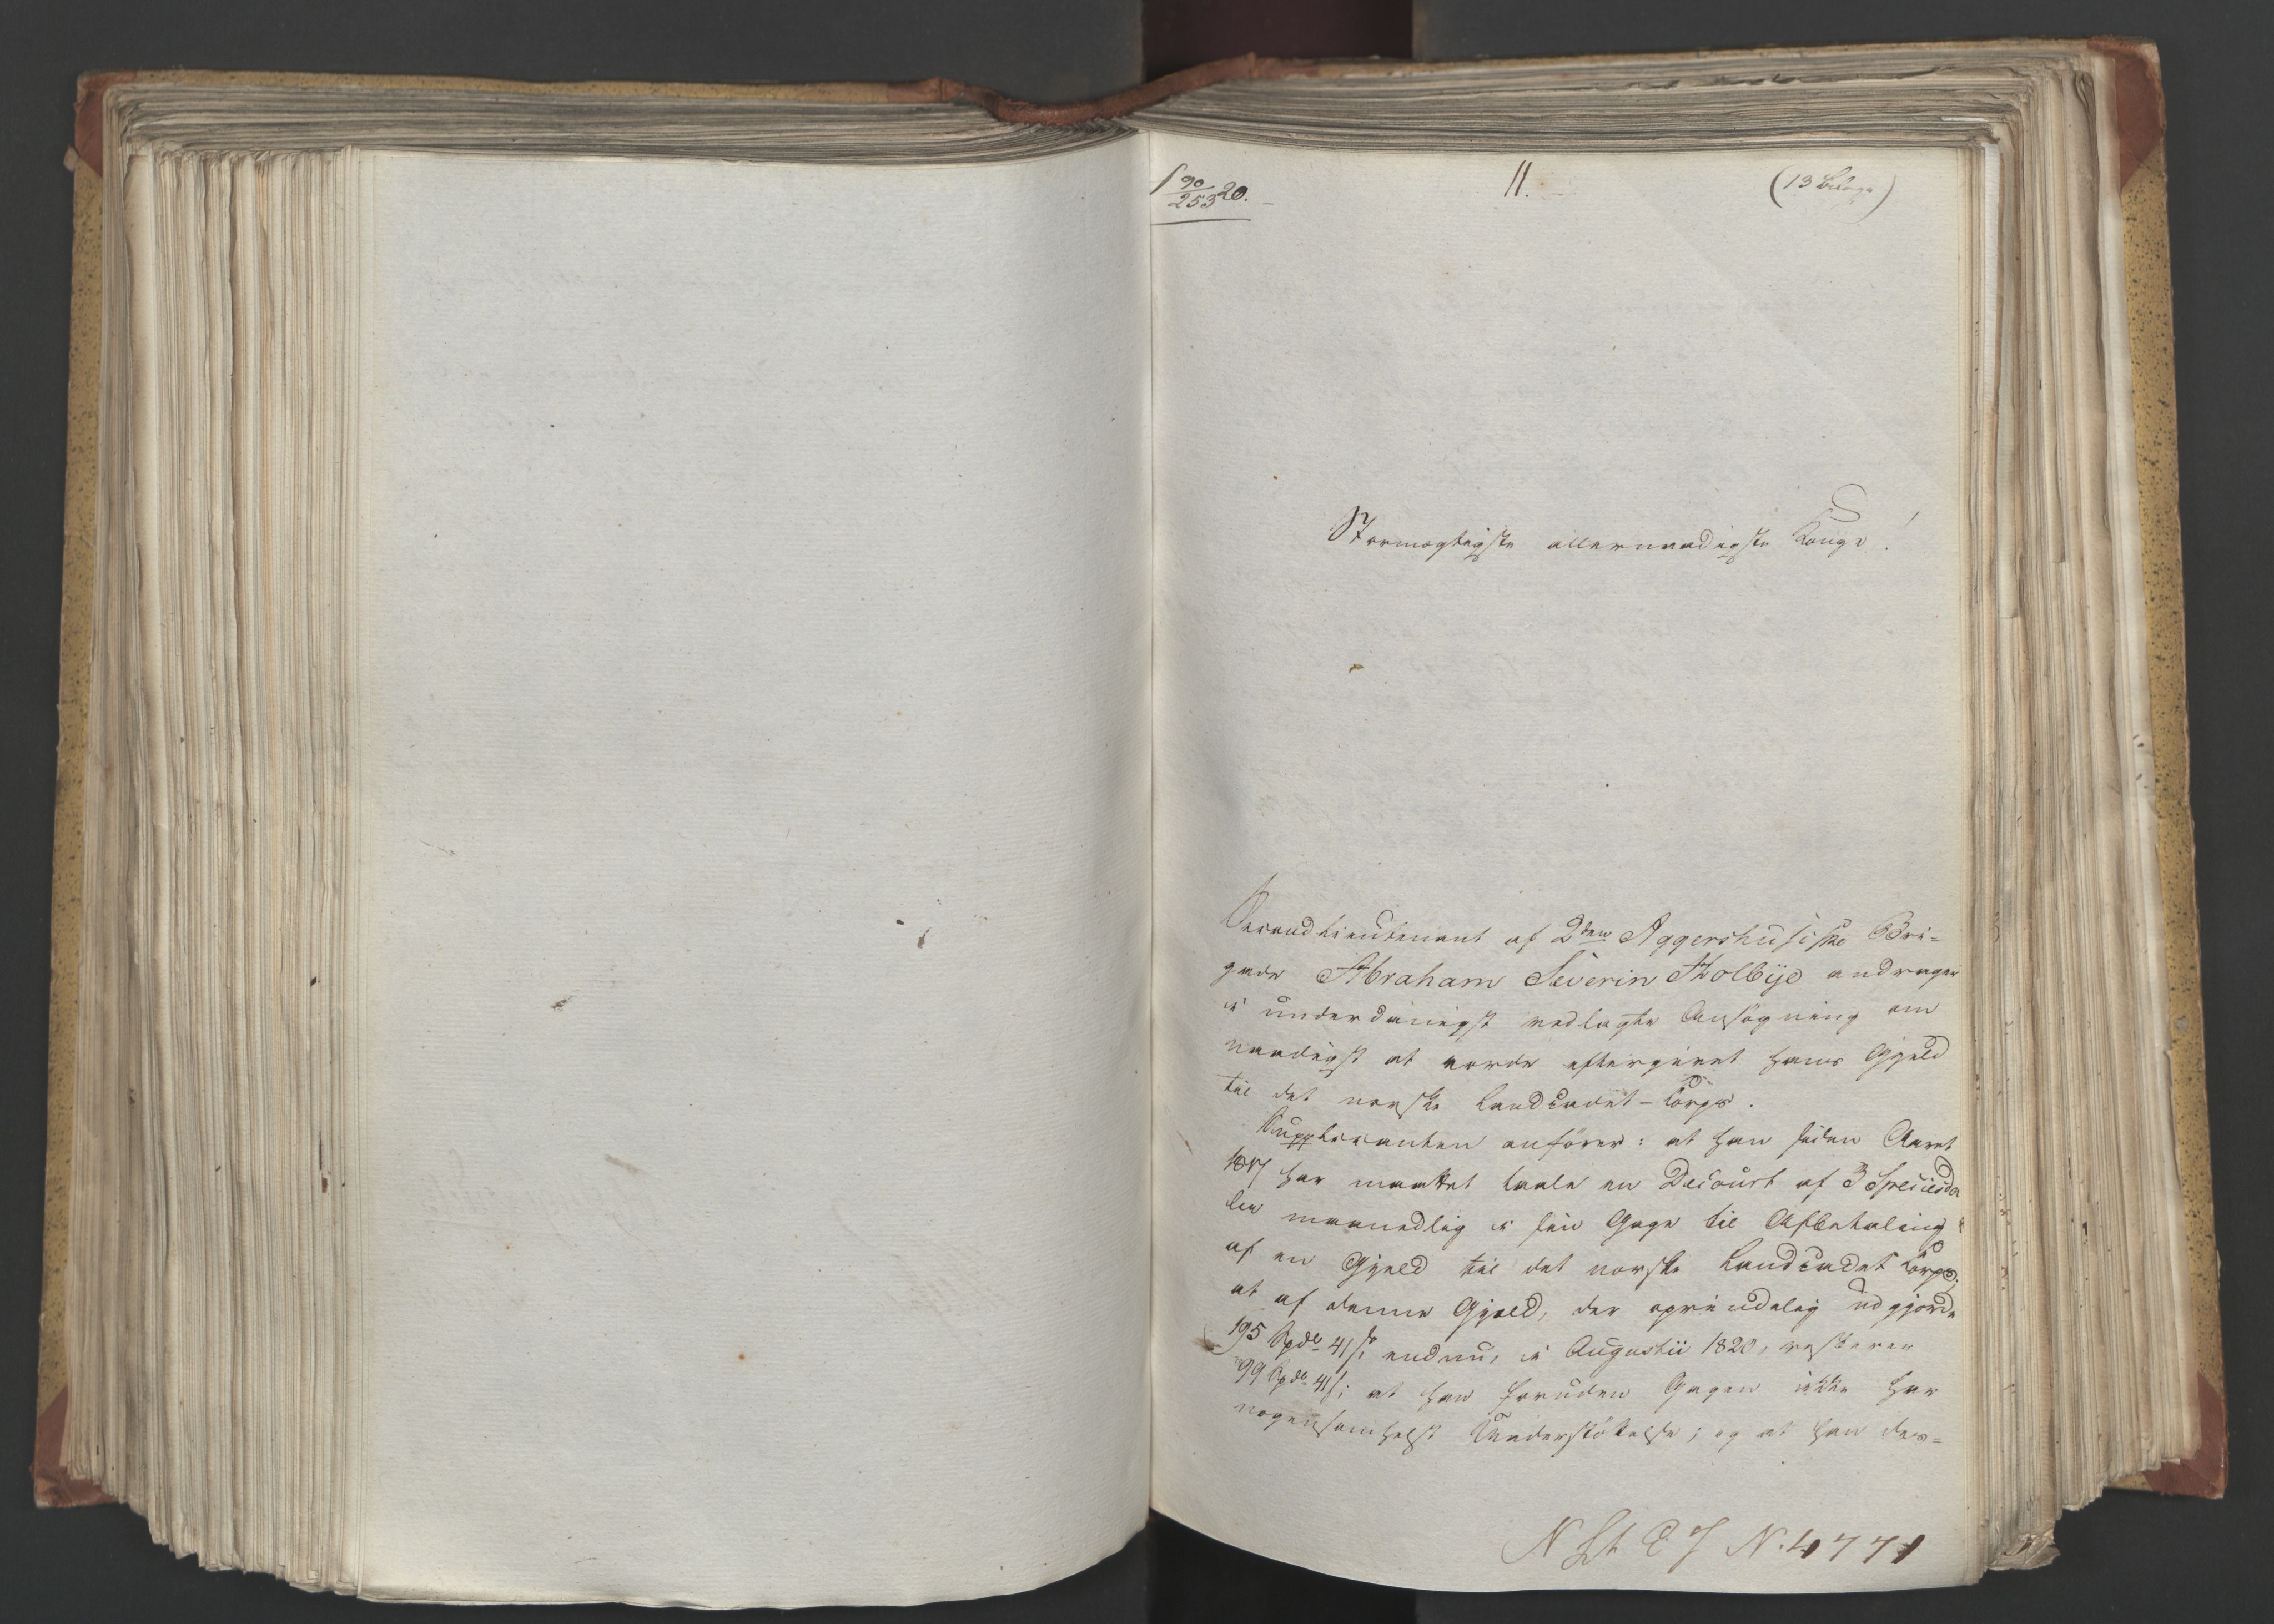 90/253 20.
11.
(13 Bilage)
Stormægtigste allernaadigste Konge!
Secondlieutenant af 2den Aggershusiske Bri-
gade Abraham Severin Holbye andrager
i underdanigst vedlagte Ansögning om
naadigst at vorde eftergivet hans Gjeld
til det norske Landcadet-Corps.
Supplicanten anförer: at han siden Aaret
1817 har maattet taale en Decourt af 3 Speciesda
ler maanedlig i sin Gage til Afbetaling
af en Gjeld til det norske Landcadet Corps;
at af denne Gjæld, der oprindelig udgjorde
195 Spdlr 41 s, endnu, i Augustii 1820, resterer
99 Spdlr 41 s; at han foruden Gagen ikke har
nogensomhelst Understöttelse; og at han des-
N St E J N. 4771